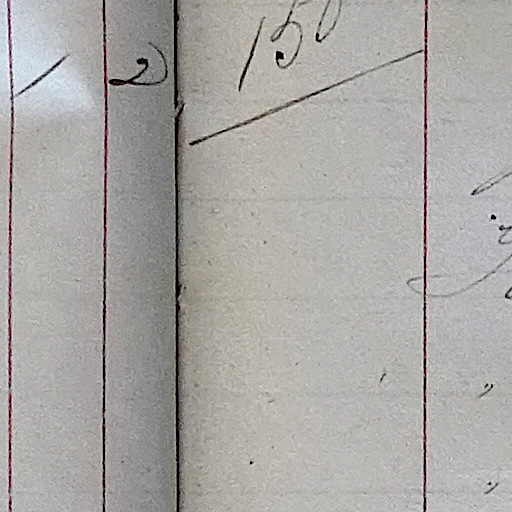 2
150
"
"